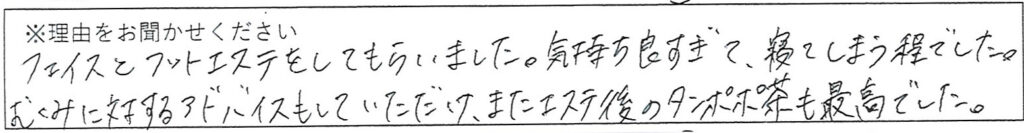 ※理由をお聞かせください
フェイスとフットエステをしてもらいました。気持ち良すぎて、寝てしまう程でした。
むくみに対するアドバイスもしていただけ、またエステ後のタンポポ茶も最高でした。